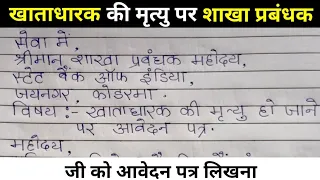 खाताधारक की मृत्यु पर शाखा प्रबंधक
सेवा में,
श्रीमान् शाखा प्रबंधक महोदय,
स्टेट बैंक ऑफ इंडिया,
जयनगर, कोडरमा.
विषय :- खाताधारक की मृत्यु हो जाने
पर आवेदन पत्र.
महोदय,
जी को आवेदन पत्र लिखना